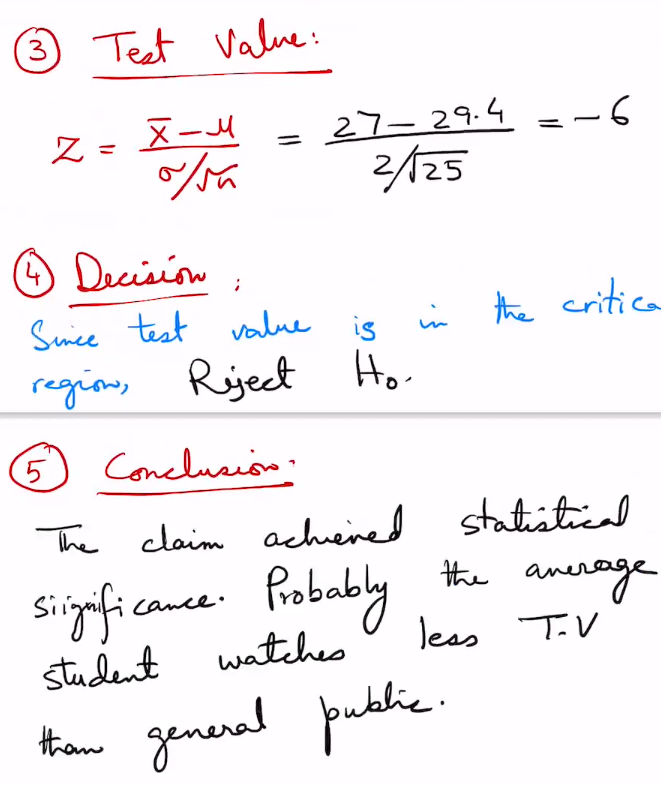 ③ Test Value:
Z = x̄ - μ / σ/√n = 27 - 29.4 / 2/√25 = -6
④ Decision :
Since test value is in the critica
region, Reject H₀.
⑤ Conclusion:
The claim achieved statistical
siignificance. Probably the average
student watches less T.V
than general public.